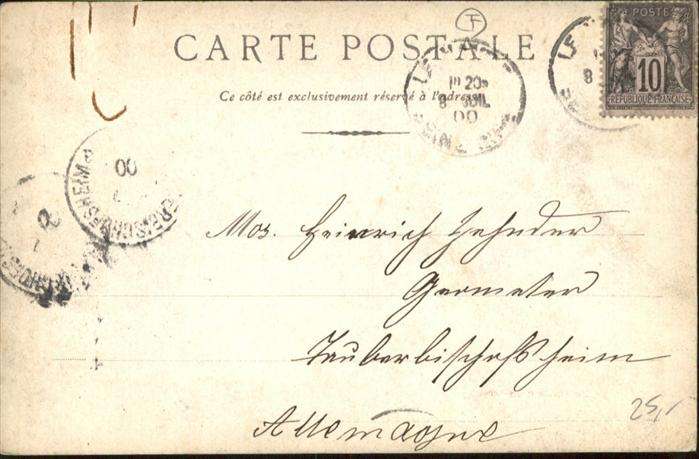 CARTE POSTALE
Ce côté est exclusivement réservé à l'adresse
POSTE
10
REPUBLIQUE FRANÇAISE
20
8 JUIL
00
SEINE
8
00
Mos. Heinrich Zehnder
Geometer
Tauberbischofsheim
Allemagne
25,
F